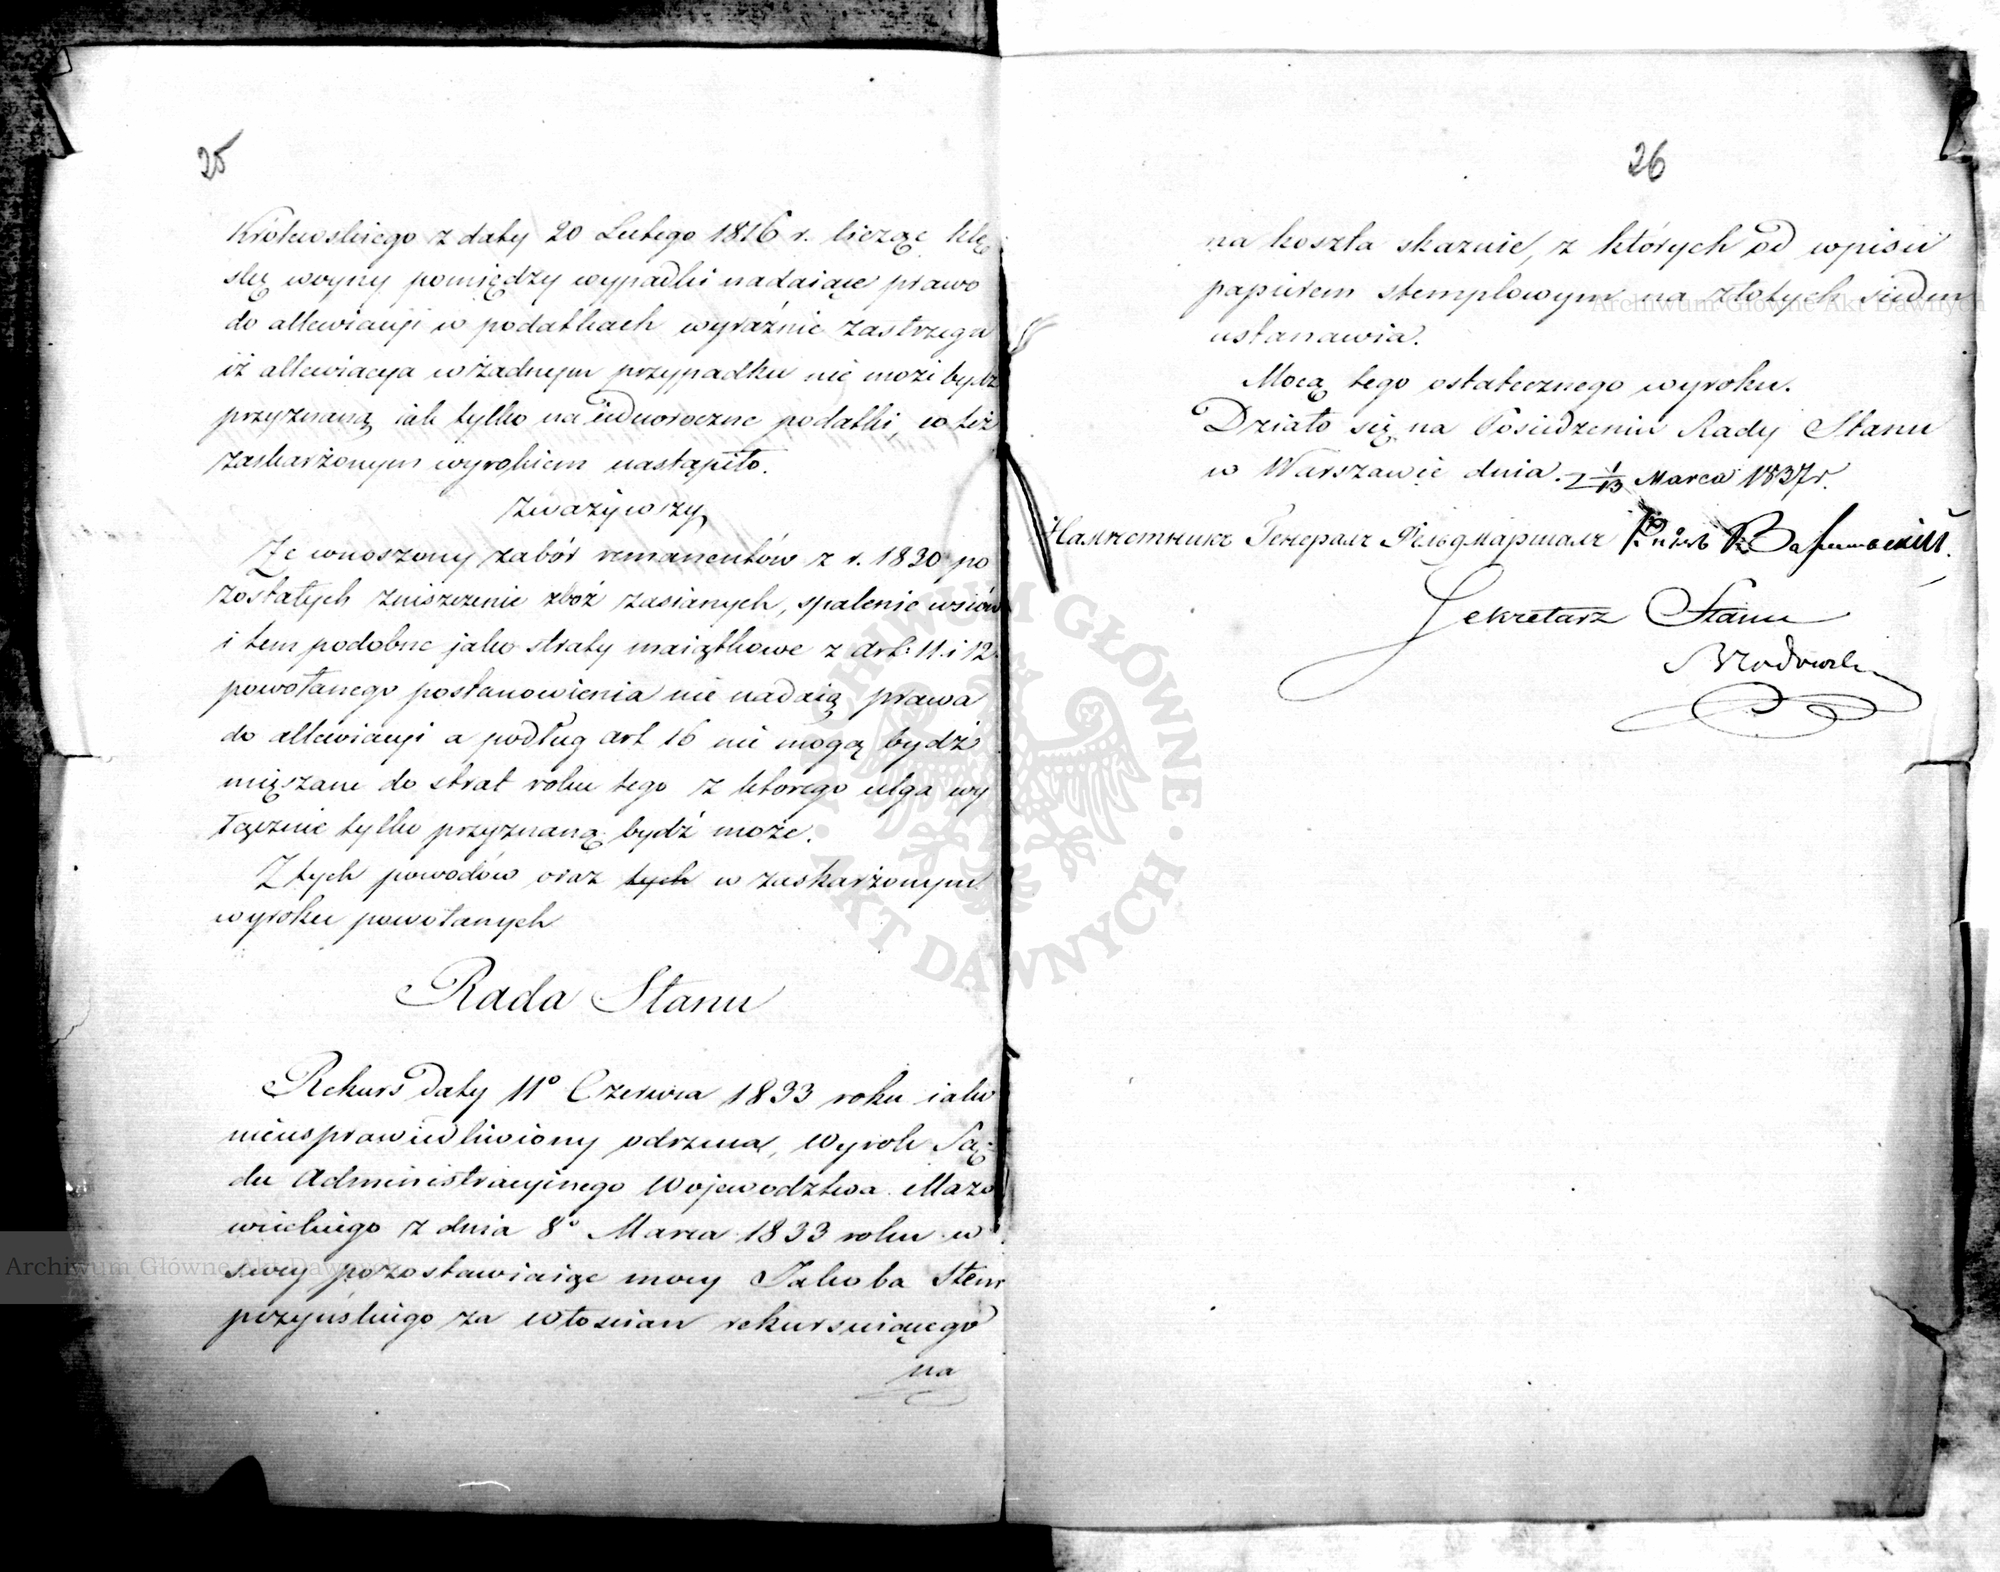 25
Królewskiego z daty 20 Lutego 1816 r. licząc klę
skę woyny pomiędzy wypadki nadaiące prawo
do allewiacyi w podatkach wyraźnie zastrzega
iż allewiacya w żadnym przypadku nie może bydź
przyznaną iak tylko na iednoroczne podatki, co też
zaskarżonym wyrokiem nastąpiło.
Zważywszy
Że wnoszony zabór remanentów z r. 1830 po
zostałych zniszczenie zbóż zasianych, spalenie wsiów
i tem podobne jako straty maiątkowe z Art: 11. i 12
powołanego postanowienia nie nadaią prawa
do allewiacyi a podług art 16 nie mogą bydź
mięszane do strat roku tego z ktorego ulga wy
łącznie tylko przyznaną bydź może.
Z tych powodów oraz tych w zaskarżonym
wyroku powołanych
Rada Stanu
Rekurs daty 11o Czerwca 1833 roku iako
nieusprawiedliwiony odrzuca, Wyrok Są-
du Administracyinego Województwa Mazo
wieckiego z dnia 8o Marca 1833 roku w
swey pozostawiaiąc mocy Jakoba Stem
przyńskiego za Włościan rekursuiącego
na
26
na koszta skazuie, z których od wpisu
papierem stemplowym na złotych siedm
ustanawia.
Mocą tego ostatecznego wyroku.
Działo się na Posiedzeniu Rady Stanu
w Warszawie dnia. 1/13 Marca 1837 r.
Намѣстникъ Генералъ Фельдмаршалъ
Sekretarz Stanu
Archiwum Główne Akt Dawnych
Archiwum Główne Akt Dawnych
ARCHIWUM GŁÓWNE AKT DAWNYCH